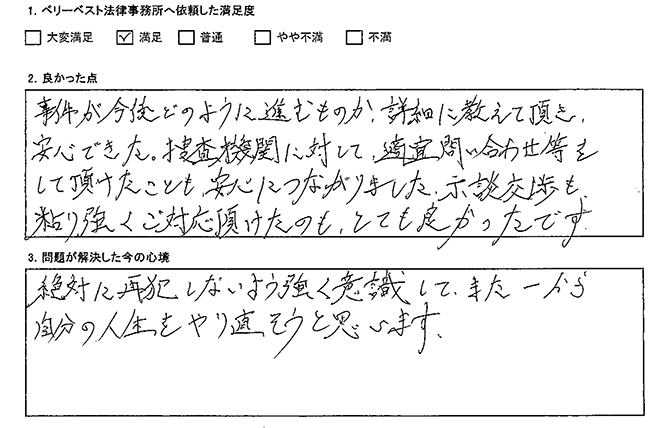 1. ベリーベスト法律事務所へ依頼した満足度
□ 大変満足 ☑ 満足 □ 普通 □ やや不満 □ 不満
2. 良かった点
事件が今後どのように進むものか、詳細に教えて頂き、
安心できた。捜査機関に対して、適宜問い合わせ等を
して頂けたことも、安心につながりました。示談交渉も
粘り強くご対応頂けたのも、とても良かったです。
3. 問題が解決した今の心境
絶対に再犯しないよう強く意識して、また一から
自分の人生をやり直そうと思います。